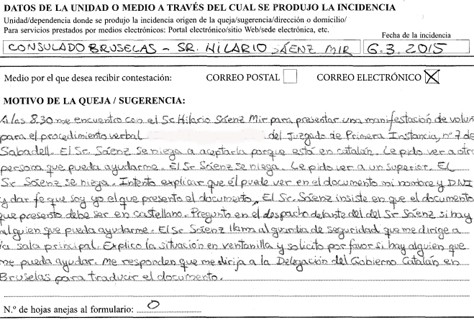 DATOS DE LA UNIDAD O MEDIO A TRAVÉS DEL CUAL SE PRODUJO LA INCIDENCIA
Unidad/dependencia donde se produjo la incidencia origen de la queja/sugerencia/dirección o domicilio/
Para servicios prestados por medios electrónicos: Portal electrónico/sitio Web/sede electrónica, etc.
Fecha de la incidencia
CONSULADO BRUSELAS - SR. HILARIO SÁENZ MIR 6.3.2015
Medio por el que desea recibir contestación: CORREO POSTAL CORREO ELECTRÓNICO X
MOTIVO DE LA QUEJA / SUGERENCIA:
A las 8.30 me encuentro con el Sr Hilario Sáenz Mir para presentar una manifestación de volun
para el procedimiento verbal del Juzgado de Primera Instancia, nº 7 de
Sabadell. El Sr. Sáenz se niega a aceptarla porque está en catalán. Le pido ver a otra
persona que pueda ayudarme. El Sr Sáenz se niega. Le pido ver a un superior. El
Sr. Sáenz se niega. Intento explicar que él puede ver en el documento mi nombre y DNI
y dar fe que soy yo el que presento el documento. El Sr. Sáenz insiste en que el documento
que presento debe ser en castellano. Pregunto en el despacho delante del del Sr Sáenz si hay
alguien que pueda ayudarme. El Sr. Sáenz llama al guardia de seguridad que me dirige a
la sala principal. Explico la situación en ventanilla y solicito por favor si hay alguien que
me pueda ayudar. Me responden que me dirija a la Delegación del Gobierno Catalán en
Bruselas para traducir el documento.
N.º de hojas anejas al formulario: 0